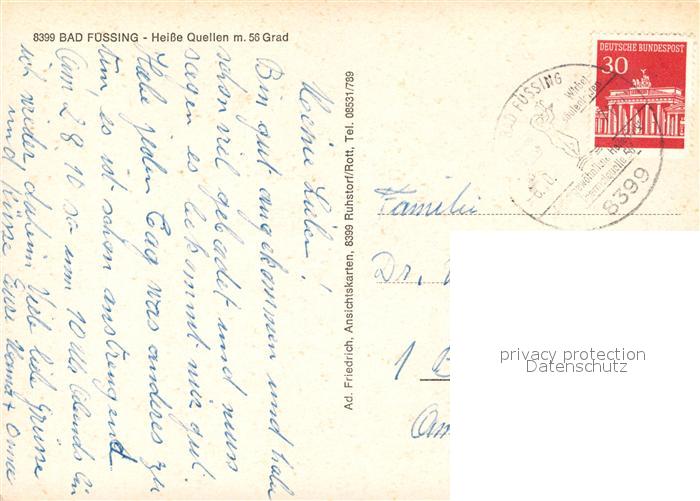 8399 BAD FÜSSING - Heiße Quellen m. 56 Grad
Meine Lieben!
Bin gut angekommen und habe
schon viel gebadet und muss
sagen es bekommt mir gut.
Habe jeden Tag was anderes zu
tun, es ist schon anstrengend.
Am 2.8. so um 10 Uhr Abends bin
ich wieder daheim Viele liebe Grüsse
und Küsse Eure Mama + Oma
Ad. Friedrich, Ansichtskarten, 8399 Ruhstorf/Rott, Tel. 08531/789
DEUTSCHE BUNDESPOST
30
BAD FÜSSING
8399
Familie
Dr.
1
privacy protection
Datenschutz